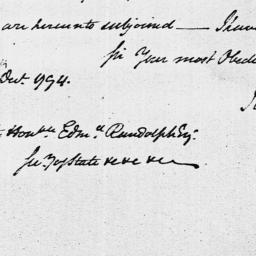 are hereunto subjoined — I have
Sir Your most Obed
Oct. 1794.
Honble Edmd Randolph Esqr.
Secy of State &c &c &c